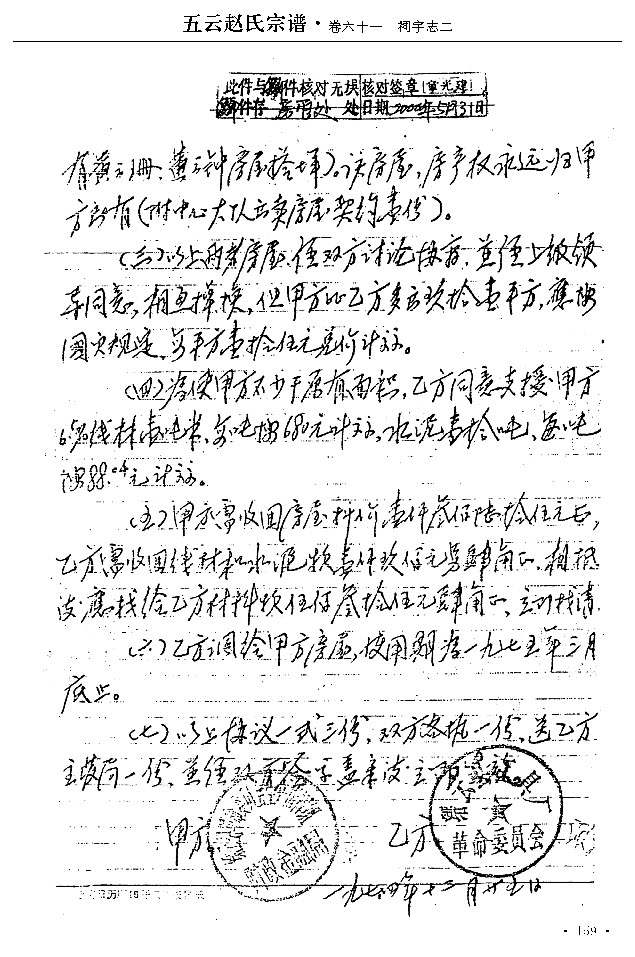 五云赵氏宗谱·卷六十一 祠宇志二
此件与原件核对无误 核对签章
原件存 处 日期2000年5月31日
房屋拾 )。该房屋,房产权永远归甲
方所有(附中心大队出卖房屋契约壹份)。
(三)以上两者房屋,经双方讨论协商,并经上级领
导同意,相互掉换,但甲方比乙方多出玖拾壹平方,应按
国家规定,每平方壹拾伍元差价计款。
(四)为使甲方不少于原有面积,乙方同意支援甲方
线材壹吨半,每吨按680元计款,水泥壹拾吨,每吨
按88.04元计款。
(五)甲方需收回房屋料价壹仟叁佰陆拾伍元正,
乙方需收回线材和水泥款壹仟玖佰元另肆角正,相抵
后应找给乙方材料款伍佰叁拾伍元肆角正,立即找清.
(六)乙方调给甲方房屋,使用期为一九七五年三月
底止。
(七)以上协议一式三份,双方各执一份,送乙方
主管局一份,并经双方签字盖章后立即 效。
甲方 乙方
财政金融局
革命委员会
一九七四年十二月廿五日
· 159 ·